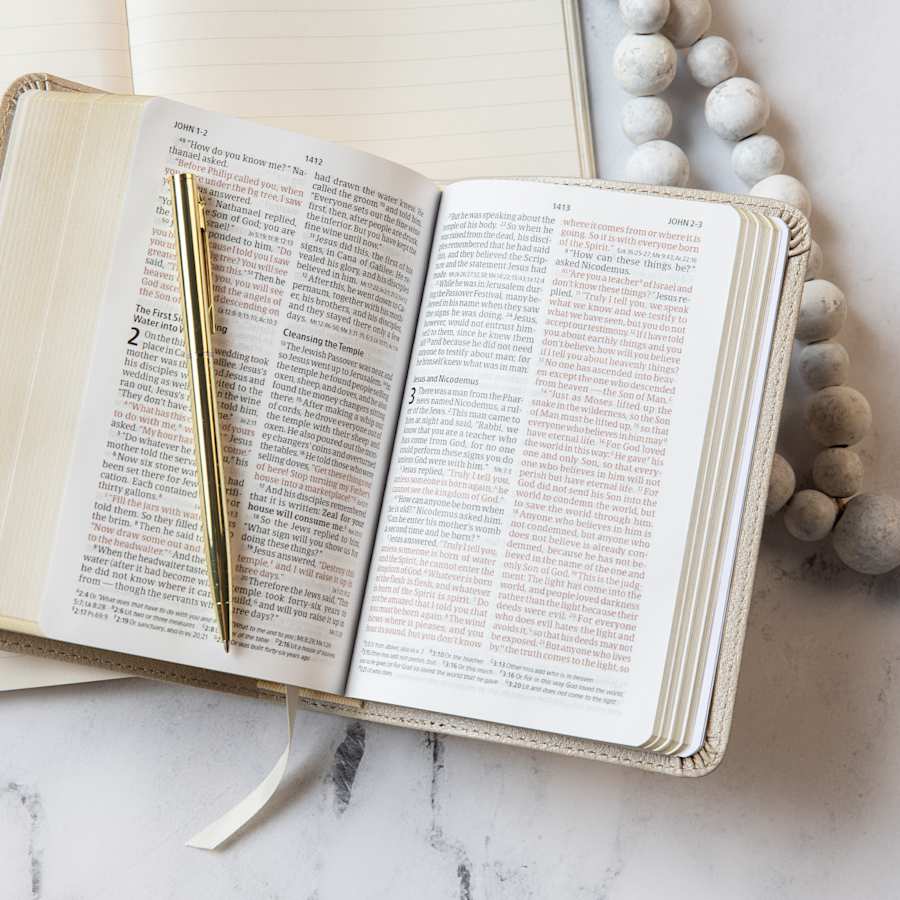 JOHN 1-2
1412
48 "How do you know me?" Na-
thanael asked.
"Before Philip called you, when
you were under the fig tree, I saw
answered.
Nathanael replied,
Son of God; you are
Israel!"
responded to him, "Do
because I told you I saw
fig tree? You will see
than this." Then he
you, you will see
and the angels of
descending on
the Son of
The First
Water into
2 On the
place in
mother was
his disciples
wedding as
ran out, Jesus's
"They don't have
"What has this
to do with me,
asked. "My hour
"Do whatever
mother told the
Now six stone
been set there for
Each contained
thirty gallons.
"Fill the jars with
told them. So they filled
the brim. 8 Then he said to
"Now draw some out and
to the headwaiter." And
9 When the headwaiter tasted
water (after it had become
he did not know where it
from — though the servants
had drawn the water knew.
He called the groom 10 and told him,
"Everyone sets out the fine wine
first, then, after people are drunk,
the inferior. But you have kept the
fine wine until now."
11 Jesus did this, the first of his
signs, in Cana of Galilee. He re-
vealed his glory, and his disciples
believed in him.
12 After this, he went down to Ca-
pernaum, together with his mother,
his brothers, and his disciples,
and they stayed there only a few
days.
Cleansing the Temple
13 The Jewish Passover was near,
so Jesus went up to Jerusalem. 14 In
the temple he found people selling
oxen, sheep, and doves, and he also
found the money changers sitting
there. 15 After making a whip out
of cords, he drove everyone out of
the temple with their sheep and
oxen. He also poured out the mon-
ey changers' coins and overturned
the tables. 16 He told those who were
selling doves, "Get these things out
of here! Stop turning my Father's
house into a marketplace!"
17 And his disciples remembered
that it is written: Zeal for your
house will consume me.
18 So the Jews replied to him,
"What sign will you show us for
doing these things?"
19 Jesus answered, "Destroy this
temple, and I will raise it up in
three days."
20 Therefore the Jews said, "This
temple took forty-six years to
build, and will you raise it up in
three days?"
1413
JOHN 2-3
21 But he was speaking about the
temple of his body. 22 So when he
was raised from the dead, his disci-
ples remembered that he had said
this, and they believed the Scrip-
ture and the statement Jesus had
made.
23 While he was in Jerusalem dur-
ing the Passover Festival, many be-
lieved in his name when they saw
the signs he was doing. 24 Jesus,
however, would not entrust him-
self to them, since he knew them
all 25 and because he did not need
anyone to testify about man; for
he himself knew what was in man.
Jesus and Nicodemus
3 There was a man from the Phar-
isees named Nicodemus, a rul-
er of the Jews. 2 This man came to
him at night and said, "Rabbi, we
know that you are a teacher who
has come from God, for no one
could perform these signs you do
unless God were with him."
3 Jesus replied, "Truly I tell you,
unless someone is born again, he
cannot see the kingdom of God."
4 "How can anyone be born when
he is old?" Nicodemus asked him.
"Can he enter his mother's womb
a second time and be born?"
5 Jesus answered, "Truly I tell you,
unless someone is born of water
and the Spirit, he cannot enter the
kingdom of God. 6 Whatever is born
of the flesh is flesh, and whatever is
born of the Spirit is spirit. 7 Do
not be amazed that I told you that
you must be born again. 8 The wind
blows where it pleases, and you
hear its sound, but you don't know
where it comes from or where it is
going. So it is with everyone born
of the Spirit."
9 "How can these things be?"
asked Nicodemus.
10 "Are you a teacher of Israel and
don't know these things?" Jesus re-
plied. 11 "Truly I tell you, we speak
what we know and we testify to
what we have seen, but you do not
accept our testimony. 12 If I have told
you about earthly things and you
don't believe, how will you believe
if I tell you about heavenly things?
13 No one has ascended into heav-
en except the one who descended
from heaven — the Son of Man.
14 "Just as Moses lifted up the
snake in the wilderness, so the Son
of Man must be lifted up, 15 so that
everyone who believes in him may
have eternal life. 16 For God loved
the world in this way: He gave his
one and only Son, so that every-
one who believes in him will not
perish but have eternal life. 17 For
God did not send his Son into the
world to condemn the world, but
to save the world through him.
18 Anyone who believes in him is
not condemned, but anyone who
does not believe is already con-
demned, because he has not be-
lieved in the name of the one and
only Son of God. 19 This is the judg-
ment: The light has come into the
world, and people loved darkness
rather than the light because their
deeds were evil. 20 For everyone
who does evil hates the light and
avoids it, so that his deeds may not
be exposed. 21 But anyone who lives
by the truth comes to the light, so